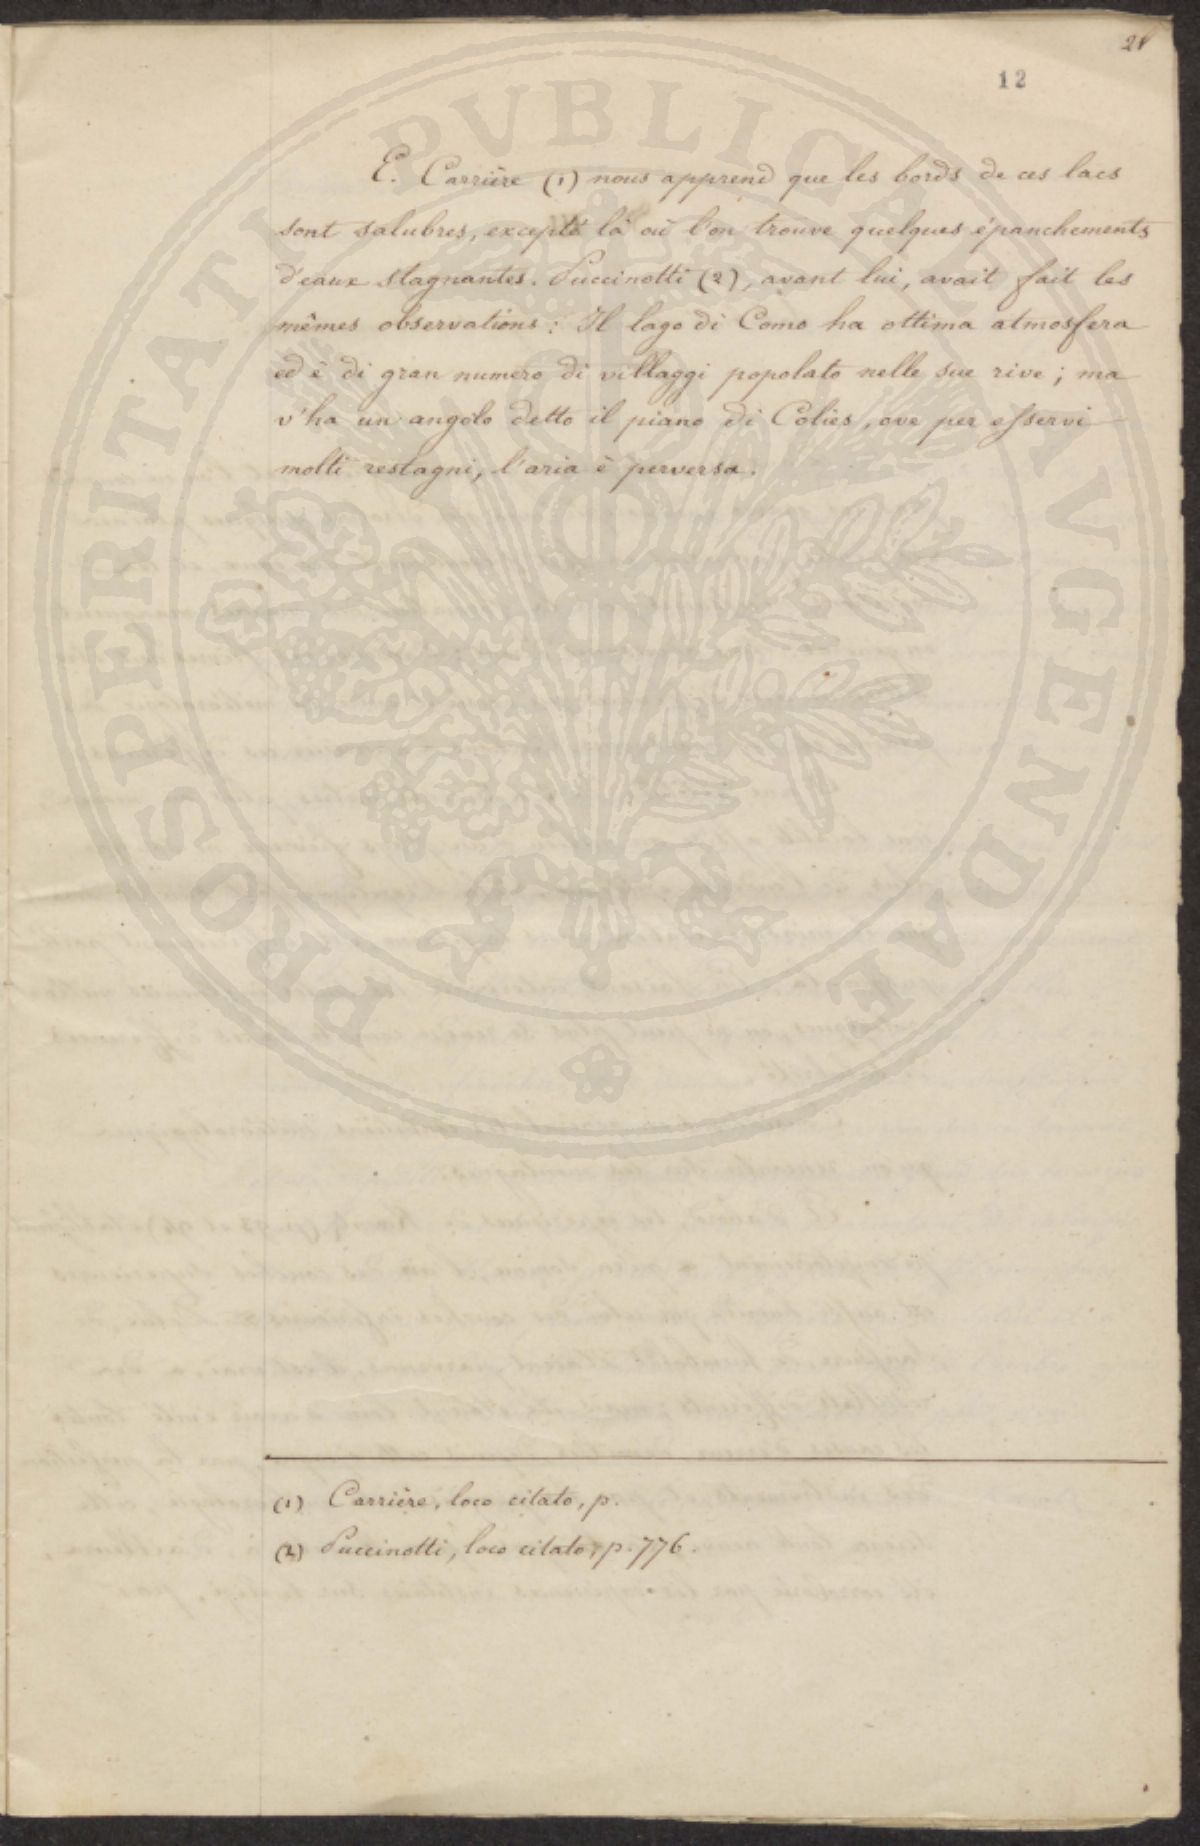 21
12
E. Carrière (1) nous apprend que les bords de ces lacs
sont salubres, excepté là où l'on trouve quelques épanchements
d'eaux stagnantes. Puccinotti (2), avant lui, avait fait les
mêmes observations : Il lago di Como ha ottima atmosfera
ed è di gran numero di villaggi popolato nelle sue rive ; ma
v'ha un angolo detto il piano di Coliès, ove per esservi
molti restagni, l'aria è perversa.
(1) Carrière, loco citato, p.
(2) Puccinotti, loco citato, p. 776.
PROSPERITATI PVBLICAE AVGENDAE